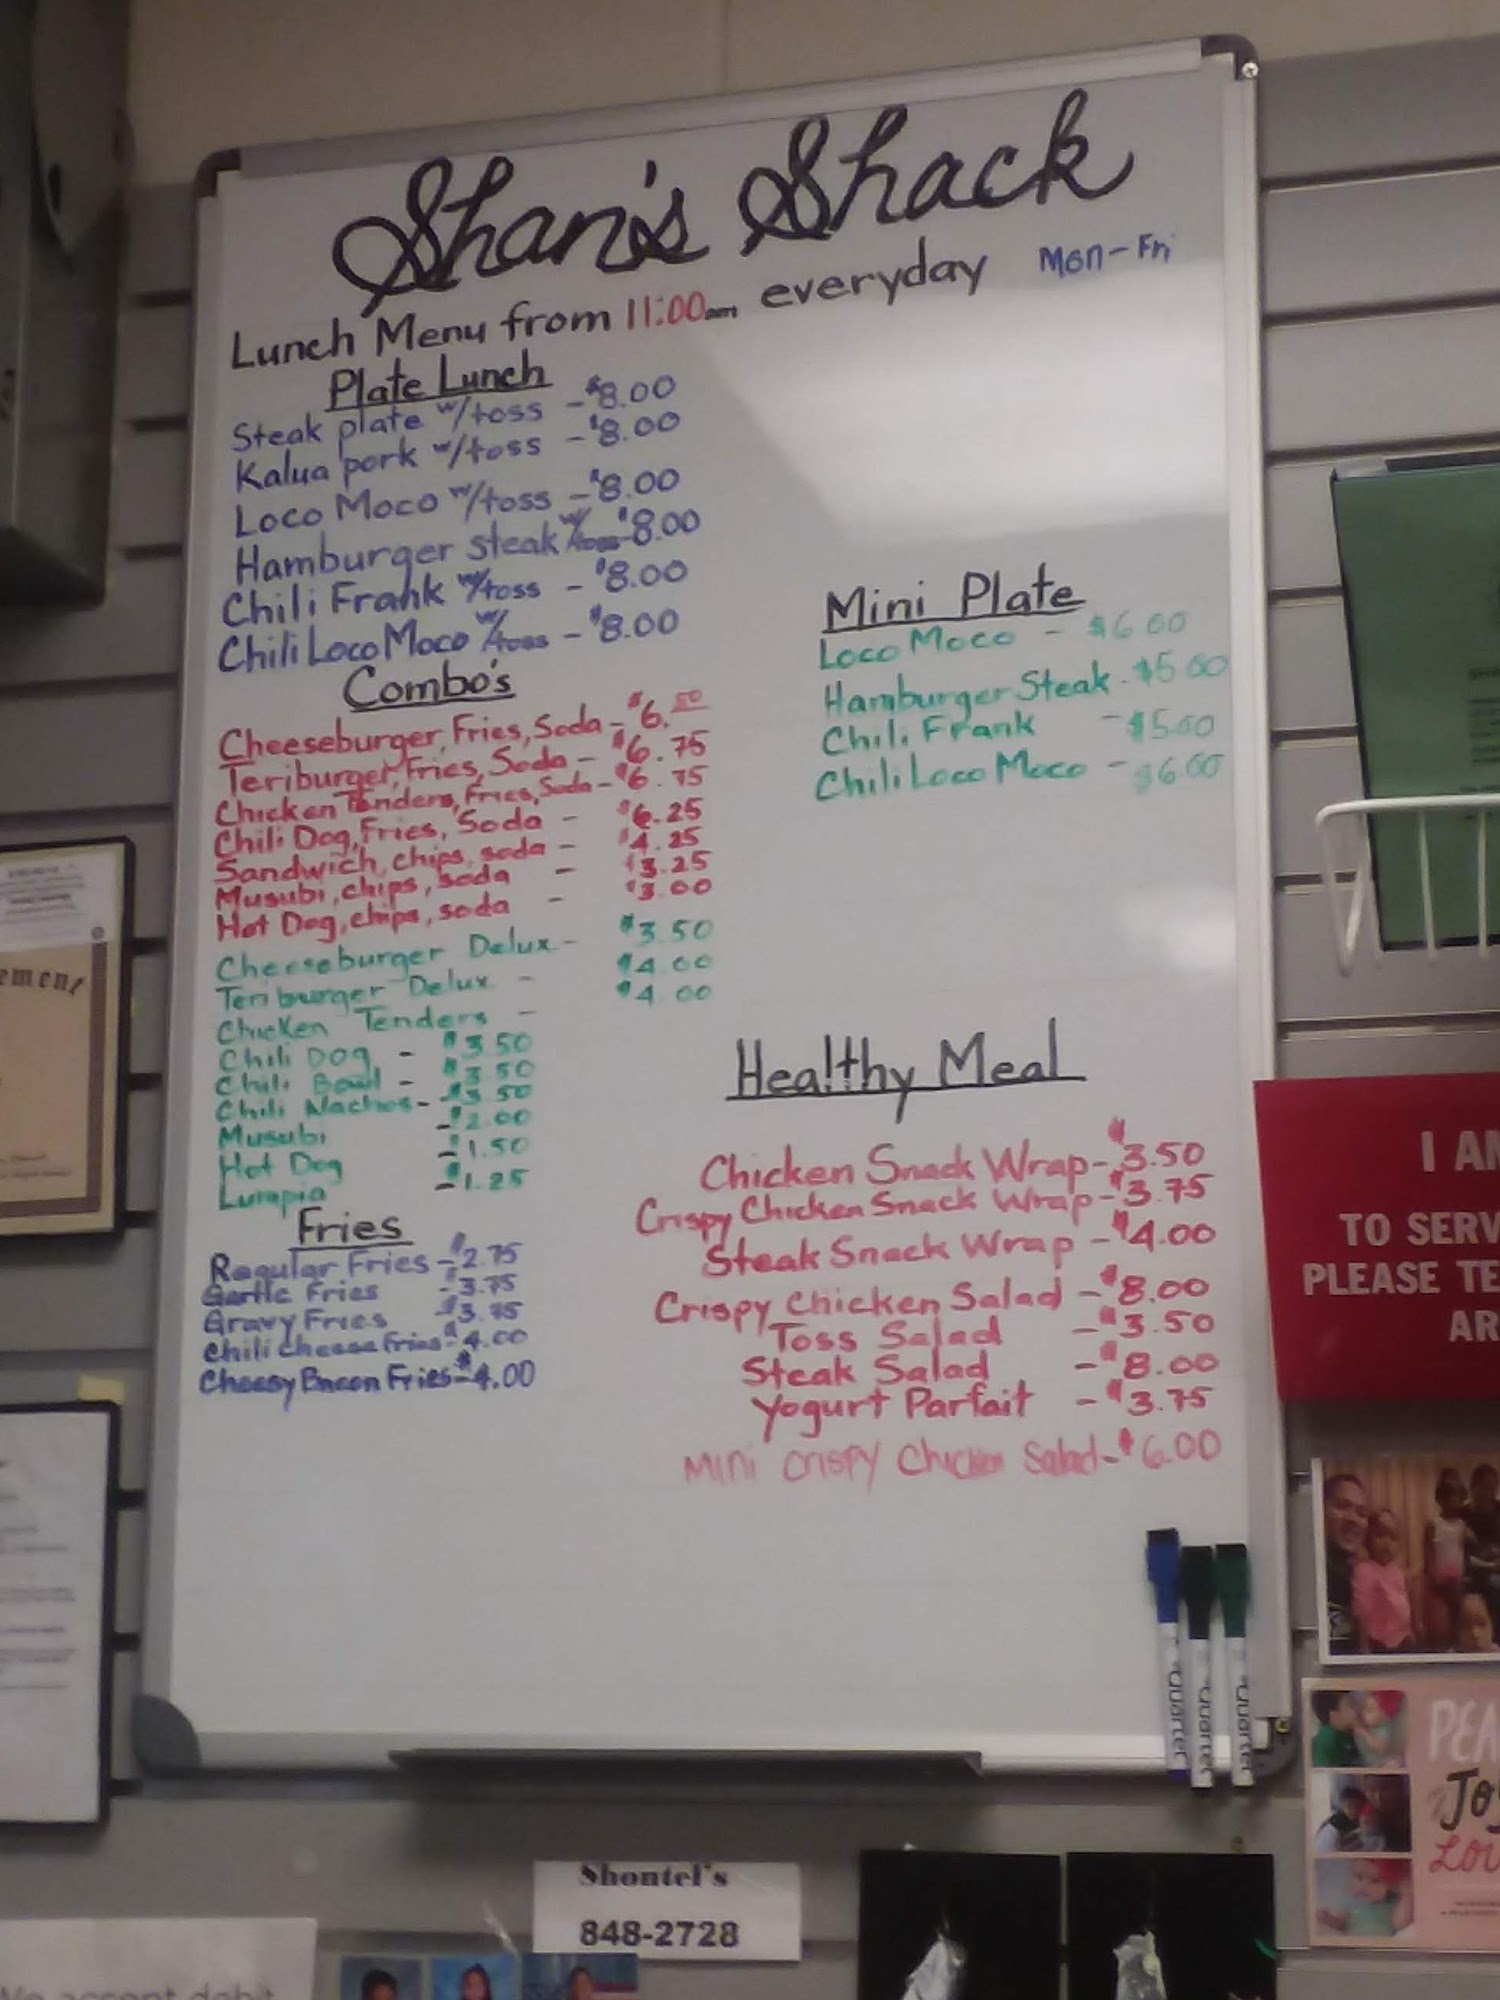 Shan's Shack
Lunch Menu from 11:00am everyday Mon-Fri
Plate Lunch
Steak plate w/toss - $8.00
Kalua pork w/toss - $8.00
Loco Moco w/toss - $8.00
Hamburger steak w/toss - $8.00
Chili Frank w/toss - $8.00
Chili Loco Moco w/toss - $8.00
Combo's
Cheeseburger, Fries, Soda - $6.50
Teriburger, Fries, Soda - $6.75
Chicken Tenders, Fries, Soda - $6.75
Chili Dog, Fries, Soda - $6.25
Sandwich, chips, soda - $4.25
Musubi, chips, soda - $3.25
Hot Dog, chips, soda - $3.00
Cheeseburger Delux - $3.50
Teriburger Delux - $4.00
Chicken Tenders - $4.00
Chili Dog - $3.50
Chili Bowl - $3.50
Chili Nachos - $3.50
Musubi - $2.00
Hot Dog - $1.50
Lumpia - $1.25
Fries
Regular Fries - $2.75
Garlic Fries - $3.75
Gravy Fries - $3.75
Chili Cheese Fries - $4.00
Cheesy Bacon Fries - $4.00
Mini Plate
Loco Moco - $6.00
Hamburger Steak - $5.00
Chili Frank - $5.00
Chili Loco Moco - $6.00
Healthy Meal
Chicken Snack Wrap - $3.50
Crispy Chicken Snack Wrap - $3.75
Steak Snack Wrap - $4.00
Crispy Chicken Salad - $8.00
Toss Salad - $3.50
Steak Salad - $8.00
Yogurt Parfait - $3.75
Mini Crispy Chicken Salad - $6.00
Quartet
Quartet
Quartet
ement
I AM
TO SERV
PLEASE TE
AR
PEA
JOY
LOV
Shontel's
848-2728
We accept debit